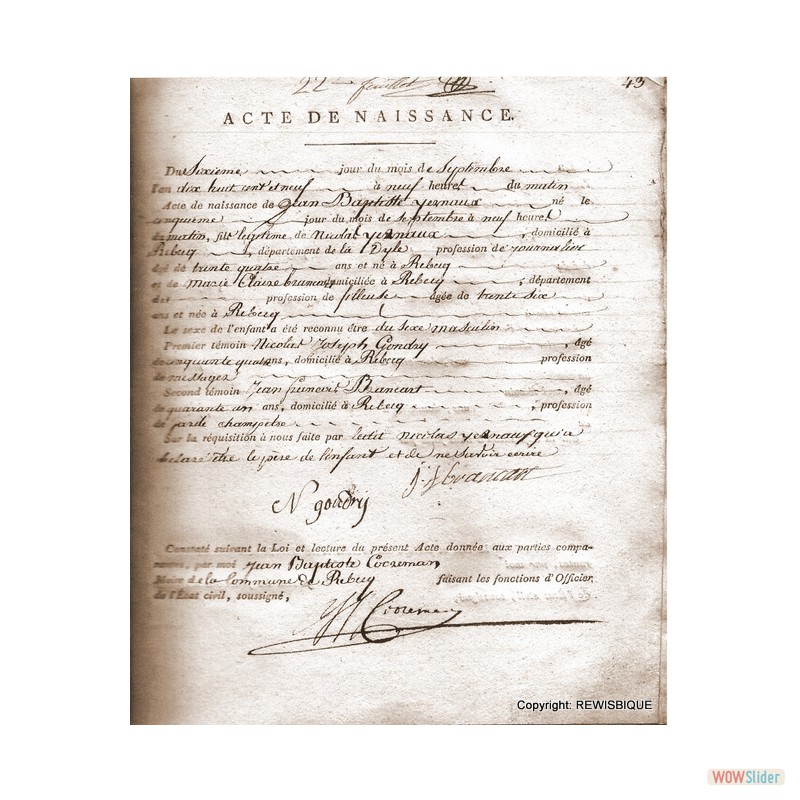 22me feuillet
43
ACTE DE NAISSANCE.
Du Sixieme jour du mois de Septembre
l'an dix huit cent et neuf à neuf heures du matin
Acte de naissance de Jean Baptiste yernaux né le
cinquème jour du mois de septembre à neuf heures
du matin, fils legitime de Nicolas yernaux, domicilié à
Rebecq, département de la Dyle profession de journalier
âgé de trente quatre ans et né à Rebecq
et de Marie Claire domiciliée à Rebecq, département
profession de filleuse âgée de trente six
ans et née à Rebecq
Le sexe de l'enfant a été reconnu être du sexe masculin
Premier témoin Nicolas Joseph Gondry, âgé
de cinquante quat ans, domicilié à Rebecq profession
de messager
Second témoin Jean francois Brancart, âgé
de quarante un ans, domicilié à Rebecq, profession
de garde champetre
Sur la réquisition à nous faite par ledit nicolas yernaux qui a
declaré être le père de l'enfant et de ne savoir ecrire
J. f brancart
N gondry
Constaté suivant la Loi et lecture du présent Acte donnée aux parties compa-
rantes, par moi Jean Baptiste Cocreman
Maire de la Commune de Rebecq faisant les fonctions d'Officier
de l'État civil, soussigné,
Cocreman
Copyright: REWISBIQUE
WOWSlider